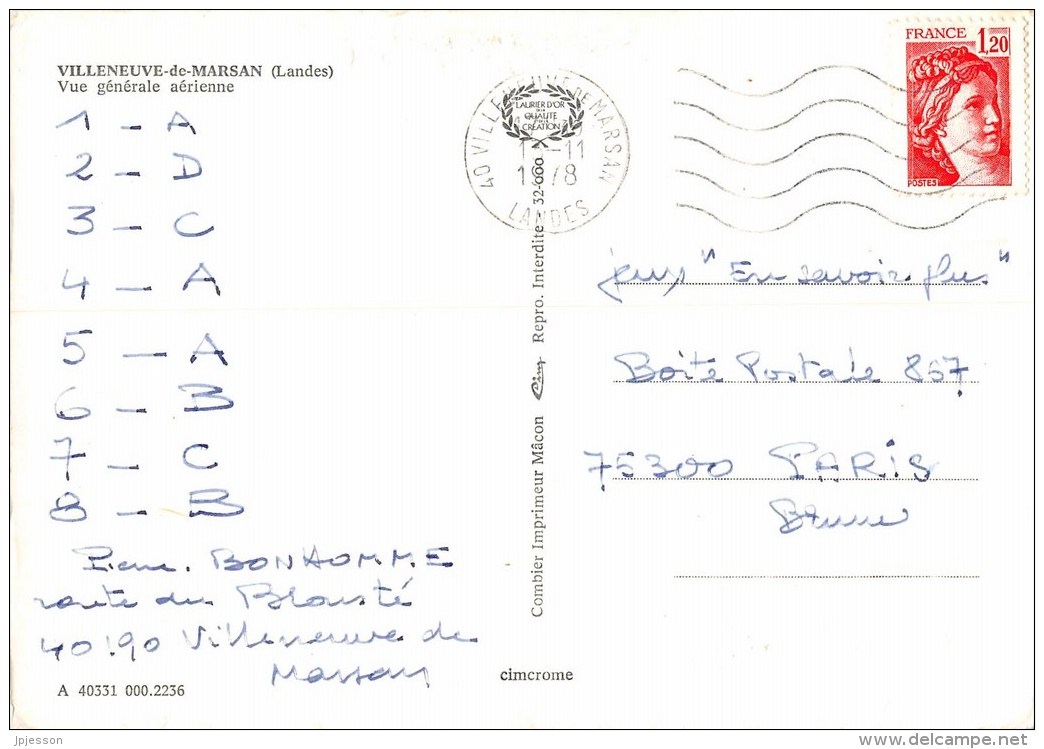 VILLENEUVE-de-MARSAN (Landes)
Vue générale aérienne
1 - A
2 - D
3 - C
4 - A
5 - A
6 - B
7 - C
8 - B
BONHOMME
route du Blousté
40190 Villeneuve de
Marsan
A 40331 000.2236
Combier Imprimeur Mâcon Cim Repro. Interdite 32-000
LAURIER D'OR
DE LA
QUALITÉ
CRÉATION
40 VILLENEUVE DE MARSAN
LANDES
FRANCE 1,20
POSTES
jeux "En savoir plus"
Boîte Postale 867
75300 PARIS
Brune
cimcrome
jpjesson
delcampe.net